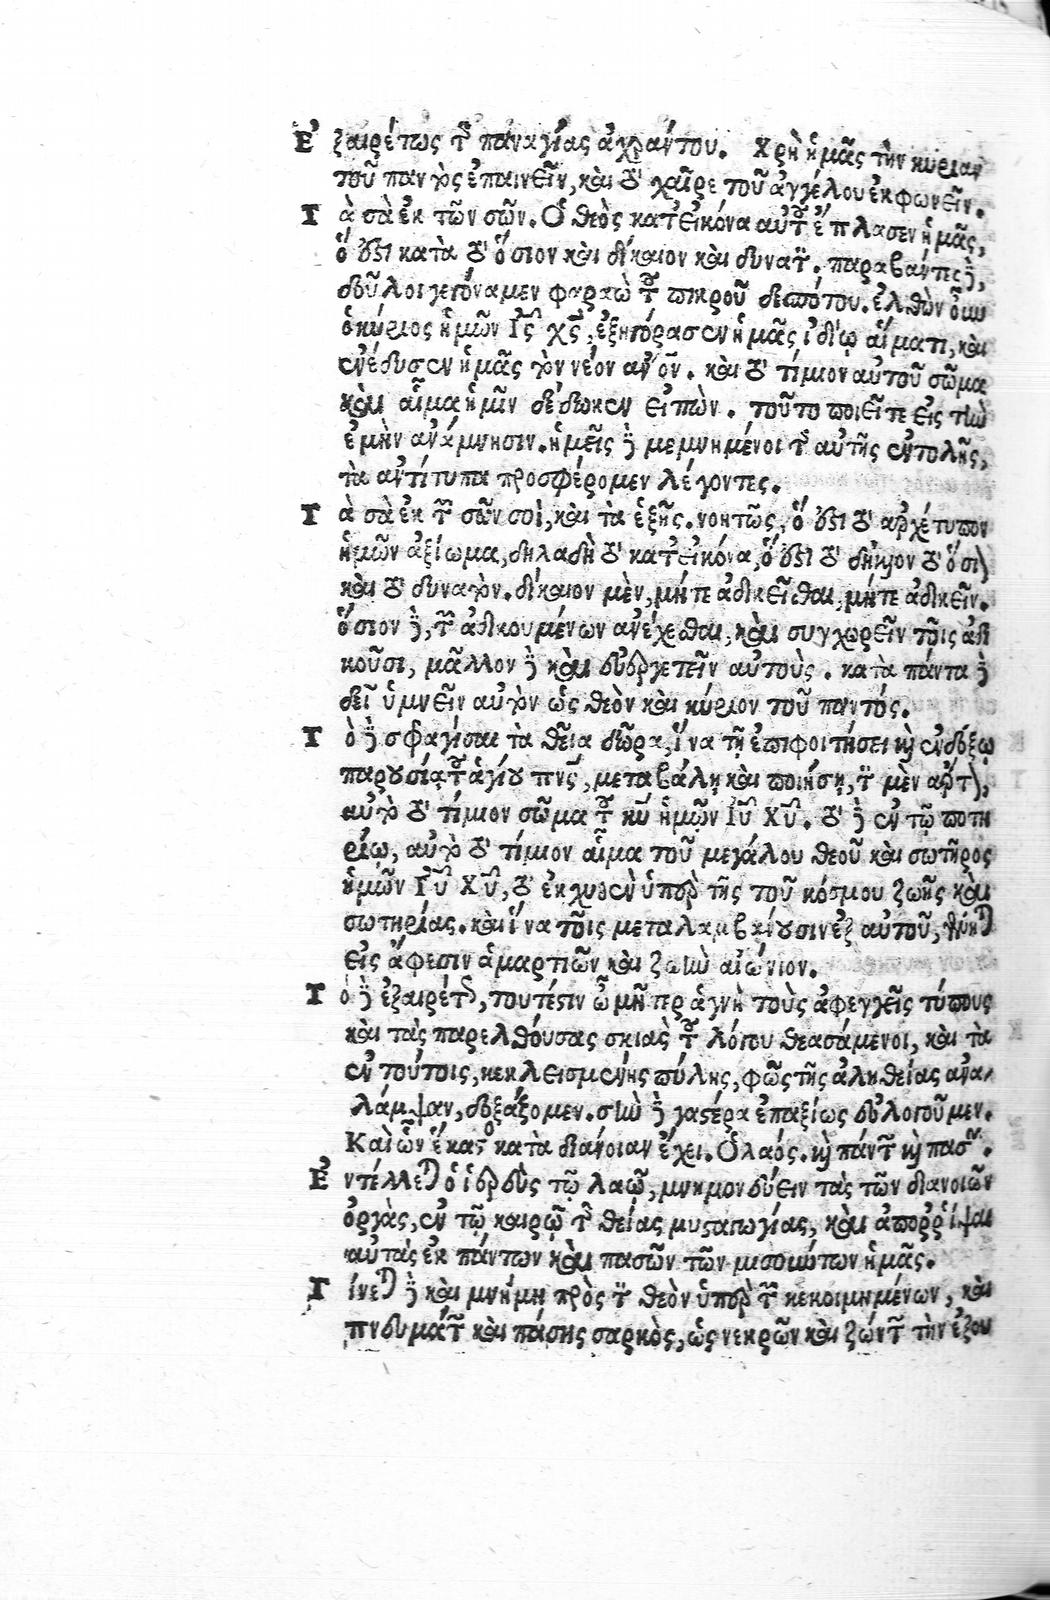 Ἐξαιρέτως τῆς παναγίας ἀχράντου. Χρὴ ἡμᾶς τὴν κυρίαν
τοῦ παντὸς ἐπαινεῖν, καὶ τὸ χαῖρε τοῦ ἀγγέλου ἐκφωνεῖν.
Τὰ σὰ ἐκ τῶν σῶν. Ὁ θεὸς κατ εἰκόνα αὐτοῦ ἔπλασεν ἡμᾶς,
ὅ ἐστι κατὰ τὸ ὅσιον καὶ δίκαιον καὶ δυνατόν. παραβάντες δὲ,
δοῦλοι γεγόναμεν φαραὼ τοῦ πικροῦ δεσπότου. ἐλθὼν οὖν
ὁ κύριος ἡμῶν Ἰς χς, ἐξηγόρασεν ἡμᾶς ἰδίῳ αἵματι, καὶ
ἐνέδυσεν ἡμᾶς τὸν νέον ἄνον. καὶ τὸ τίμιον αὐτοῦ σῶμα
καὶ αἷμα ἡμῖν δέδωκεν εἰπὼν. τοῦτο ποιεῖτε εἰς τὴν
ἐμὴν ἀνάμνησιν. ἡμεῖς δὲ μεμνημένοι τῆς αὐτῆς ἐντολῆς,
τὰ ἀντίτυπα προσφέρομεν λέγοντες.
Τὰ σὰ ἐκ τῶν σῶν σοὶ, καὶ τὰ ἑξῆς. νοητῶς, ὅ ἐστι τὸ ἀρχέτυπον
ἡμῶν ἀξίωμα, δηλαδὴ τὸ κατ εἰκόνα, ὅ ἐστι τὸ δίκαιον τὸ ὅσιον
καὶ τὸ δυνατὸν. δίκαιον μὲν, μήτε ἀδικεῖσθαι, μήτε ἀδικεῖν.
ὅσιον δὲ, τῶν ἀδικουμένων ἀνέχεσθαι, καὶ συγχωρεῖν τοῖς ἀδι
κοῦσι, μᾶλλον δὲ καὶ εὐεργετεῖν αὐτοὺς. κατὰ πάντα δὲ
δεῖ ὑμνεῖν αὐτὸν ὡς θεὸν καὶ κύριον τοῦ παντός.
Τὸ δὲ σφαγίσαι τὰ θεῖα δῶρα, ἵνα τῇ ἐπιφοιτήσει καὶ ἐνδόξῳ
παρουσίᾳ τοῦ ἁγίου πνς, μεταβάλῃ καὶ ποιήσῃ, τὸν μὲν ἄρτον,
αὐτὸ τὸ τίμιον σῶμα τοῦ κυ ἡμῶν Ἰυ Χυ. τὸ δὲ ἐν τῷ ποτη
ρίῳ, αὐτὸ τὸ τίμιον αἷμα τοῦ μεγάλου θεοῦ καὶ σωτῆρος
ἡμῶν Ἰυ Χυ, τὸ ἐκχυθὲν ὑπὲρ τῆς τοῦ κόσμου ζωῆς καὶ
σωτηρίας. καὶ ἵνα τοῖς μεταλαμβάνουσιν ἐξ αὐτοῦ, γένηται
εἰς ἄφεσιν ἁμαρτιῶν καὶ ζωὴν αἰώνιον.
Τὸ δὲ ἐξαιρέτως, τουτέστιν ὦ μῆτερ ἁγνὴ τοὺς ἀφεγγεῖς τύπους
καὶ τὰς παρελθούσας σκιὰς τοῦ λόγου θεασάμενοι, καὶ τὰ
ἐν τούτοις, κεκλεισμένης πύλης, φῶς τῆς ἀληθείας ἀνα
λάμψαν, δοξάζομεν. σὴν δὲ γαστέρα ἐπαξίως εὐλογοῦμεν.
Καὶ ὧν ἕκαστος κατὰ διάνοιαν ἔχει. Ὁ λαός. καὶ πάντων καὶ πασῶν.
Ἐντέλλεται ὁ ἱερεὺς τῷ λαῷ, μνημονεύειν τὰς τῶν διανοιῶν
ὀργὰς, ἐν τῷ καιρῷ τῆς θείας μυσταγωγίας, καὶ ἀπορρίψαι
αὐτὰς ἐκ πάντων καὶ πασῶν τῶν μισούντων ἡμᾶς.
Γίνεται δὲ καὶ μνήμη πρὸς τὸν θεὸν ὑπὲρ τῶν κεκοιμημένων, καὶ
πνευμάτων καὶ πάσης σαρκὸς, ὡς νεκρῶν καὶ ζώντων τὴν ἐξου